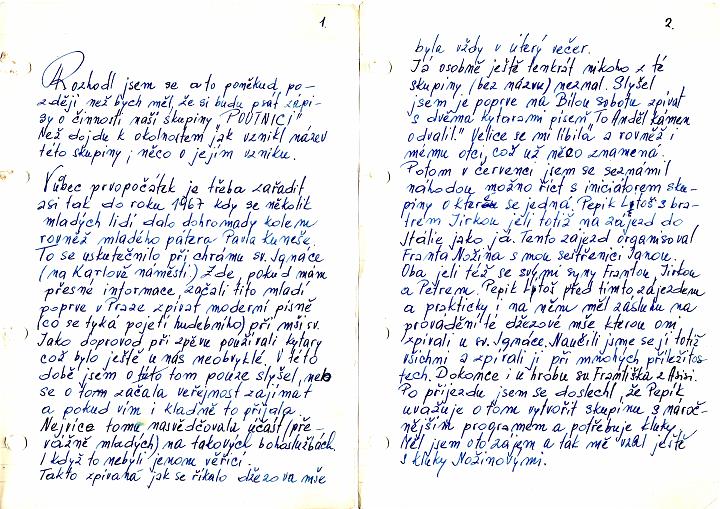 1.
Rozhodl jsem se a to poněkud po-
zději než bych měl, že si budu psát zápi-
sy o činnosti naší skupiny "POUTNÍCI"
Než dojdu k okolnostem, jak vznikl název
této skupiny, něco o jejím vzniku.
Vůbec prvopočátek je třeba zařadit
asi tak do roku 1967 kdy se několik
mladých lidí dalo dohromady kolem
rovněž mladého pátera Pavla Kuneše.
To se uskutečnilo při chrámu sv. Ignáce
(na Karlově náměstí). Zde, pokud mám
přesné informace, začali tito mladí
poprve v Praze zpívat moderní písně
(co se týká pojetí hudebního) při mši sv.
Jako doprovod při zpěvu používali kytary
což bylo ještě u nás neobvyklé. V této
době jsem o tom pouze slyšel, neb
se o tom začala veřejnost zajímat
a pokud vím i kladně to přijala
Nejvíce tomu nasvědčovala účast (pře-
vážně mladých) na takových bohoslužbách.
I když to nebyli jenom věřící.
Takto zpívaná jak se říkalo džezová mše
2.
byla vždy v úterý večer.
Já osobně ještě tenkrát nikoho z té
skupiny (bez názvu) neznal. Slyšel
jsem je poprve na Bílou sobotu zpívat
s dvěma kytarami píseň "To Anděl kámen
odvalil." Velice se mi líbila a rovněž i
mému otci, což už něco znamená.
Potom v červenci jsem se seznámil
náhodou možno říct s iniciátorem sku-
piny o kterou se jedná. Pepík Lytoš s bra-
trem Jirkou jeli totiž na zájezd do
Itálie jako já. Tento zájezd organisoval
Franta Nožina s mou sestřenicí Janou.
Oba jeli též se svými syny Frantou, Jirkou
a Petrem. Pepík Lytoš před tímto zájezdem
a prakticky i na něm měl zásluhu na
provádění té džezové mše kterou oni
zpívali u sv. Ignáce. Naučili jsme se jí totiž
všichni a zpívali ji při mnohých příležitos-
tech. Dokonce i u hrobu sv. Františka z Asisi.
Po příjezdu jsem se doslechl, že Pepík
uvažuje o tom vytvořit skupinu s nároč-
nějším programem a potřebuje kluky.
Měl jsem o to zájem a tak mě vzal ještě
s kluky Nožinovými.